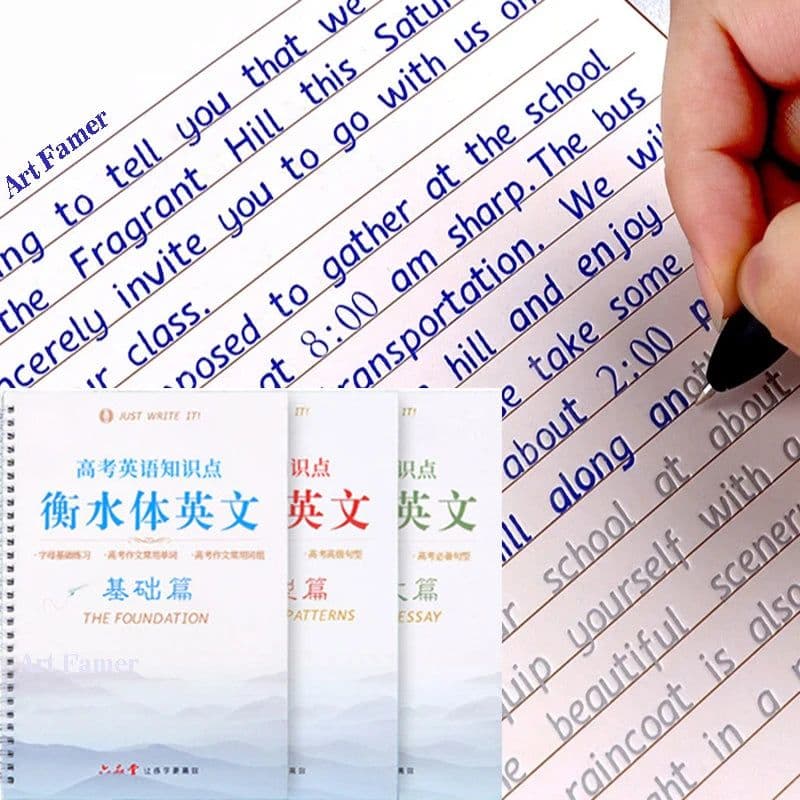 to tell you that we
Art Famer
ing to
Fragrant Hill this Satur
the
sincerely invite you to go with us on
ur class.
pposed to gather at the school
at 8:00 am sharp. The bus
transportation. We will
hill and enjoy
take some
about 2:00 p
ll along another
school at about
uip yourself with a
beautiful scenery
raincoat is also
ht in a
JUST WRITE IT!
高考英语知识点
衡水体英文
·字母基础练习 ·高考作文常用单词 ·高考作文常用词组
基础篇
THE FOUNDATION
Art Famer
六品堂 让练字更高效
IT!
识点
英文
·高考高级句型
型篇
PATTERNS
高效
IT!
识点
英文
·高考必备句型
文篇
ESSAY
高效